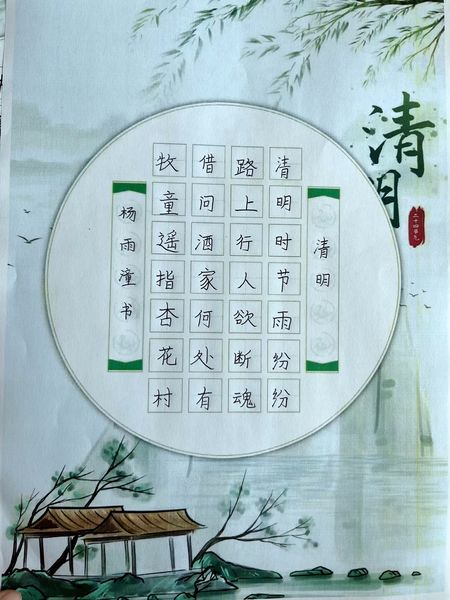 清明
二十四节气
清明
清明时节雨纷纷
路上行人欲断魂
借问酒家何处有
牧童遥指杏花村
杨雨潼书